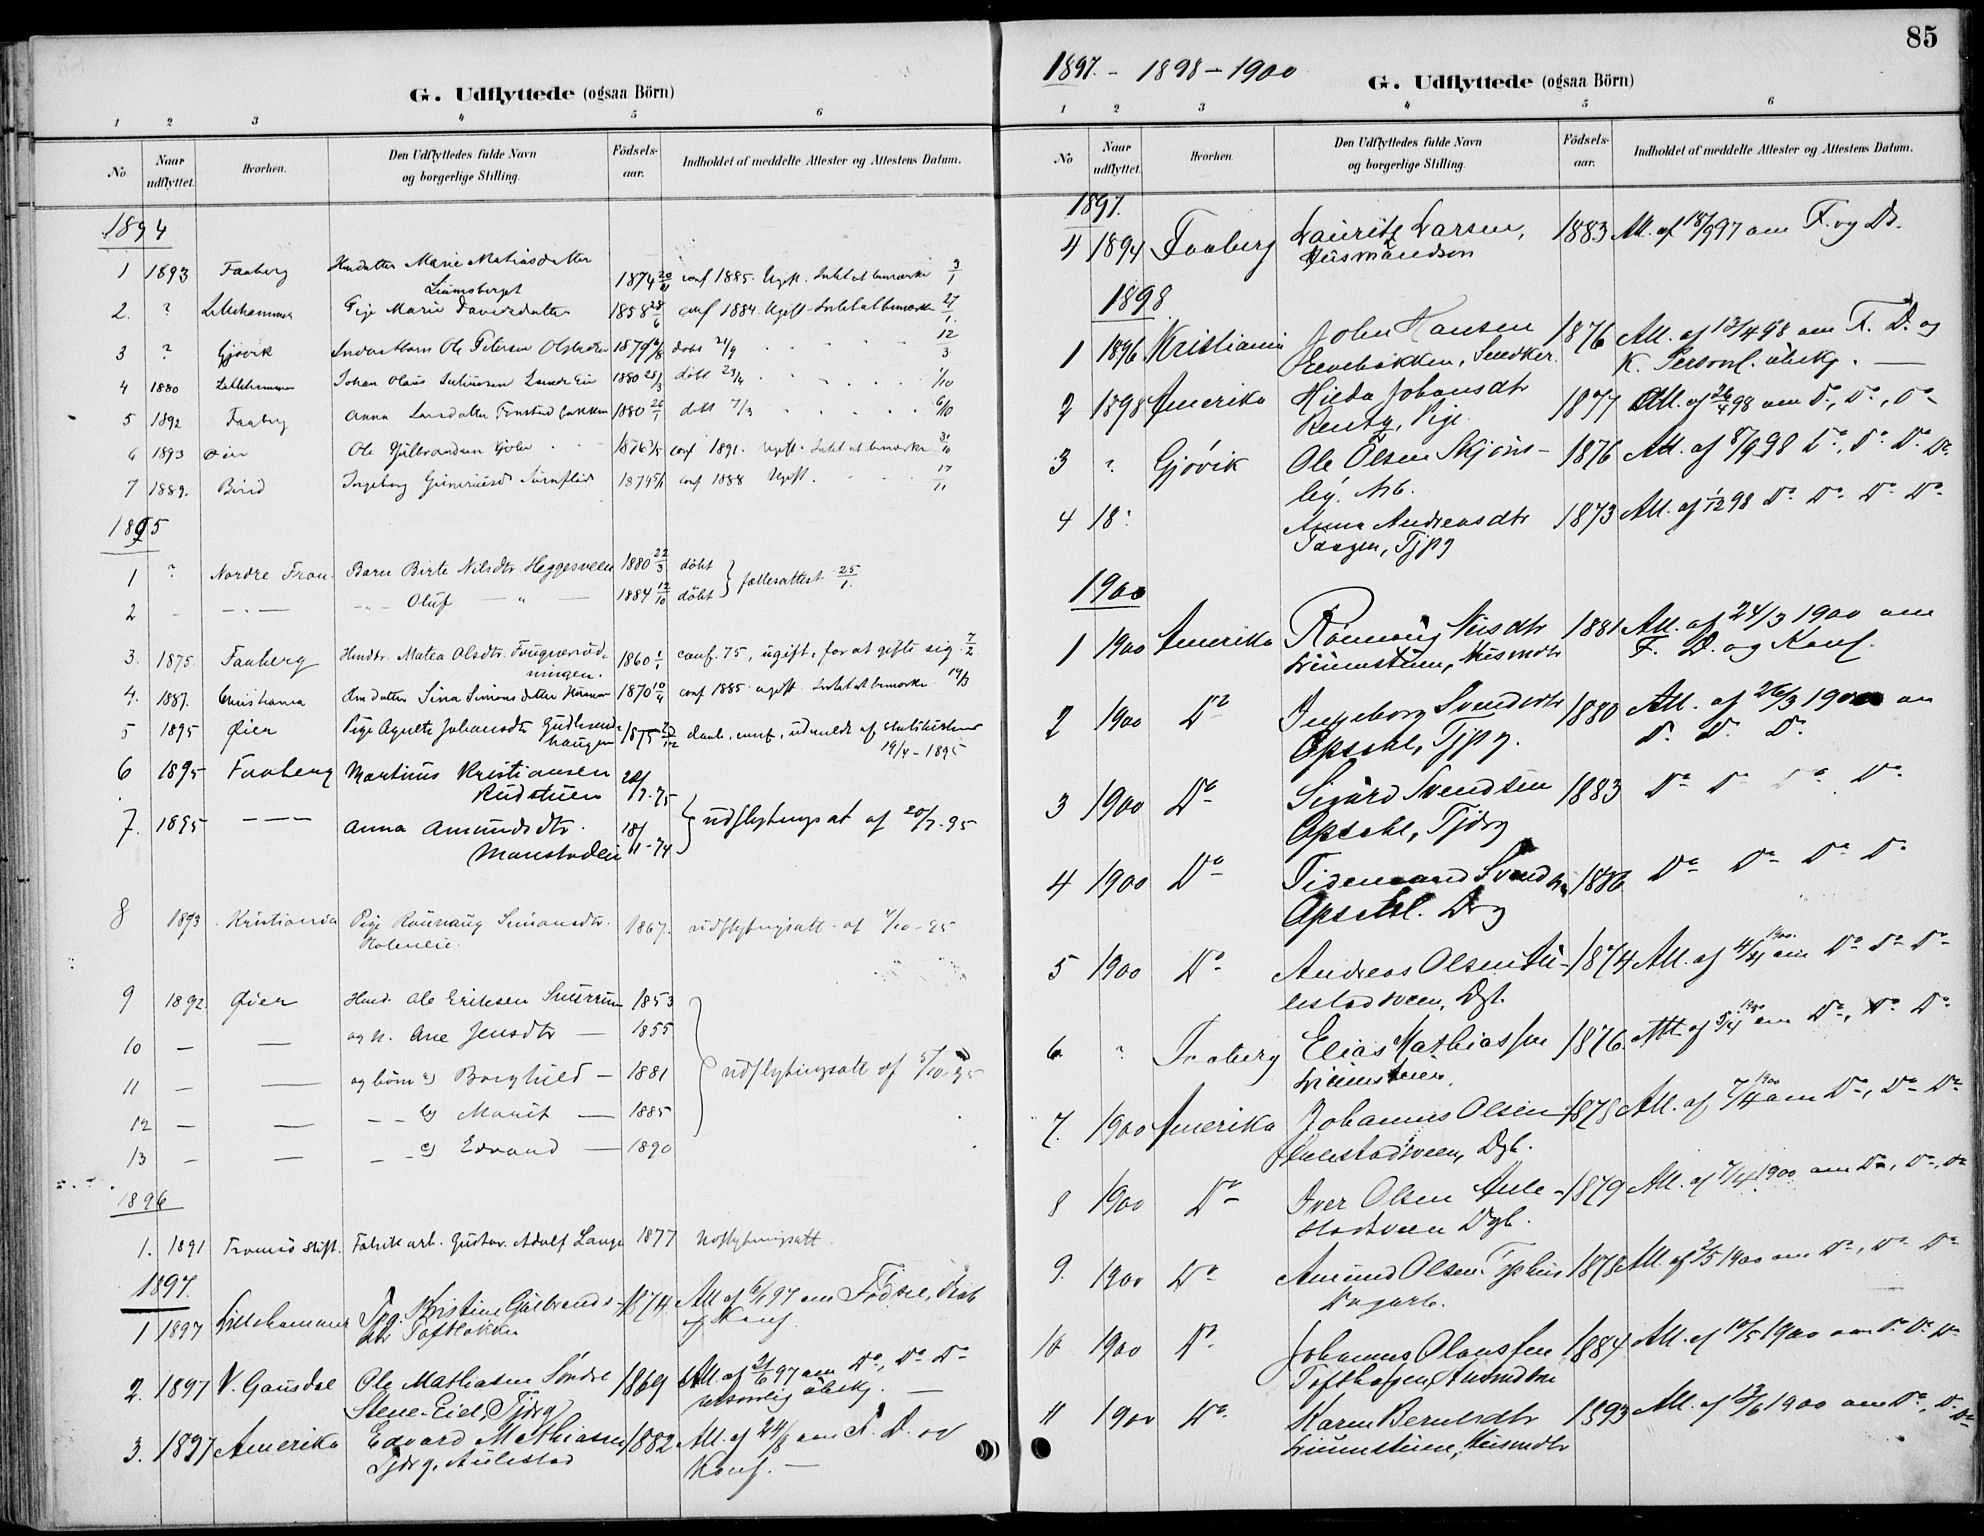 G. Udflyttede (ogsaa Börn)
1 2 3 4 5 6
No Naar udflyttet. Hvorhen. Den Udflyttedes fulde Navn og borgerlige Stilling. Födsels-aar. Indholdet af meddelte Attester og Attestens Datum.
1894
1 1893 Faaberg Marie Mathiasdatter 1874 conf 1885. Ugift. Intet at bemærke 3/1
2. ? Lillehammer Pige Marie Davidsdatter 1858 28/6 conf 1884. Ugift - Intet at bemærke 27/1
3 ? Gjövik Ole Petersen 1879 döbt 21/9 12/3
4 1880 Lillehammer Johan Olaus Julius 1880 28/3 döbt 23/4 1/10
5 1892 Faaberg Anna Larsdatter 1880 26/1 döbt 7/3 6/10
6 1893 Öier Ole Gulbrandsen 1876 conf 1891. Ugift. Intet at bemærke
7 1889. Biri Ingeborg 1874 conf 1888 Ugift. 17/11
1895
1 ? Nordre Fron Barn Birte Nilsdtr. Heggesveen 1880 22/3 döbt
2 - - Oluf 1884 12/10 döbt fællesattest 25/1.
3. 1875. Faaberg Matea Olsdtr. 1860 1/1 conf. 75, ugift, for at gifte sig 7/2
ningen.
4. 1887. Christiania Sina Simonsdatter 1870 10/4 conf 1885 ugift. Intet at bemærke. 19/3
5 1895 Øier Pige Agnete Johansdtr. Gudbrands-
haugen 1875 daab, conf., udmeldt af Statskirken
19/4 - 1895
6 1895 Faaberg Martinus Kristiansen
Rudstuen 75
7. 1895 - - - Anna Amundsdtr. 18/11 - 74 udflytningsat af 20/7. 95
8 1893 Kristiania Pige Rönnaug Simonsdtr. 1867. udflytningsatt. af 4/10 - 95
Holeneie.
9 1892 Øier Ole Eriksen 1853
10 - - og h. Ane Jensdtr - 1855
11 - - og börn a) Borghild - 1881 udflytningsatt af 5/10 - 95
12 - - - - b) Marit - 1885
13 - - - - c) Edvard - 1890
1896
1. 1891 Tromsö stift. Fabrikarb. Gustav Adolf Lange 1877 Udflytningsatt.
1897.
1 1897 Lillehammer Kristine Gulbrands- 1874 Att af 6/1 97 om Födsel, Daab
dtr Toftbakken og Konf.
2. 1897 V. Gausdal Ole Mathiasen Söndre 1869 Att. af 21/6 97 om Do, Do Do
Stene-Eie, Tjdrg
3. 1897 Amerika Edvard Mathiassen 1882 Att. af 24/8 om F. D. og
Tjdrg, Aulestad Konf. -
85
1897. - 1898 - 1900
G. Udflyttede (ogsaa Börn)
1 2 3 4 5 6
No Naar udflyttet. Hvorhen. Den Udflyttedes fulde Navn og borgerlige Stilling. Födsels-aar. Indholdet af meddelte Attester og Attestens Datum.
1897.
4 1894 Faaberg Lauritz Larsen, 1883 Att. af 18/9 97 om F. og D.
Husmandssön
1898.
1 1896 Kristiania John Hansen 1876 Att. af 13/4 98 om F. D. og
Snedker. K. Personl.
2 1898 Amerika Hilda Johansdtr 1877 Att. af 26/4 98 om Do, Do, Do
Pige.
3 ? Gjövik Ole Olsen Skjöns- 1876 Att. af 8/9 98 Do. Do. Do. Do.
by. Arb.
4 18? Anna Andreasdtr 1873 Att. af 1/12 98 Do Do Do Do
1900
1 1900 Amerika Rönnaug Nilsdtr 1881 Att. af 24/3 1900 om
Husmdtr F. D. og Konf.
2 1900 Do Ingeborg Svendsdtr 1880 Att. af 26/3 1900 om
Opsahl, Tjpg. Do Do Do
3 1900 Do Sigurd Svendsen 1883 Do Do Do Do
Opsahl, Tjdrg
4 1900 Do Tidemand Svendsen 1886 Do Do Do Do
Opsahl. Drg
5 1900 Do Andreas Olsen Au- 1874 Att. af 4/4 1900 om Do Do Do
lestadsveen, Dgl.
6 ? Faaberg Elias Mathiassen 1876 Att. af 5/4 1900 om Do, Do Do
7. 1900 Amerika Johannes Olsen 1875 Att. af 7/4 1900 om Do, Do Do
Aulestadsveen, Dgl.
8 1900 Do Iver Olsen Aule- 1879 Att. af 7/4 1900 om Do, Do, Do
stadsveen Dgl.
9. 1900 Do Amund Olsen 1878 Att. af 2/5 1900 om Do, Do Do
Dagarb.
10 1900 Do Johannes Olaussen 1884 Att. af 10/5 1900 om Do Do Do
11 1900 Do. Karen Berntsdtr 1893 Att. af 13/6 1900 om Do, Do Do
Husmdtr